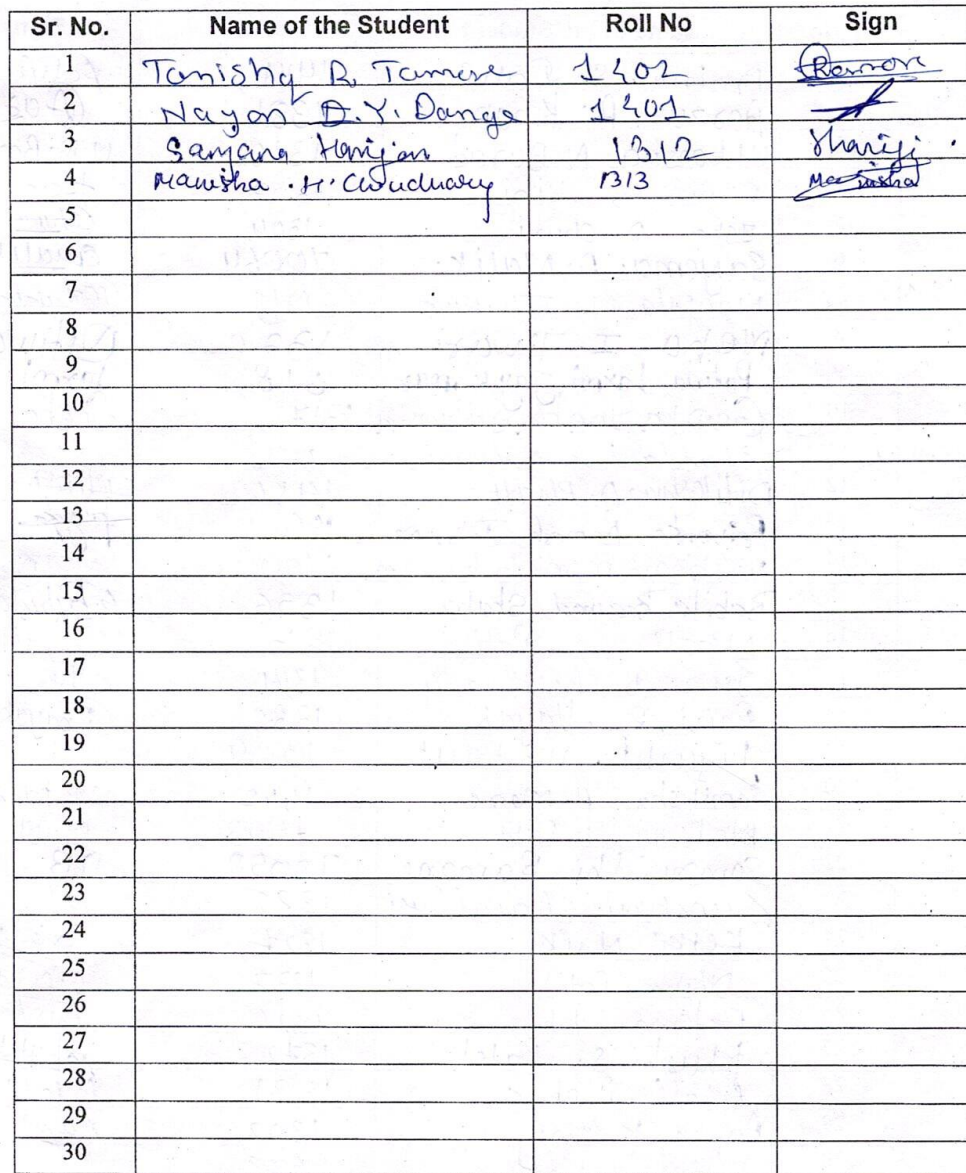 Sr. No. Name of the Student Roll No Sign
1 Tanishq R. Tamore 1402
2 Nayan D.Y. Dange 1401
3 Sanjana Harijan 1312 Shariji.
4 Manisha . H. Choudhary 1313 Manisha
5
6
7
8
9
10
11
12
13
14
15
16
17
18
19
20
21
22
23
24
25
26
27
28
29
30